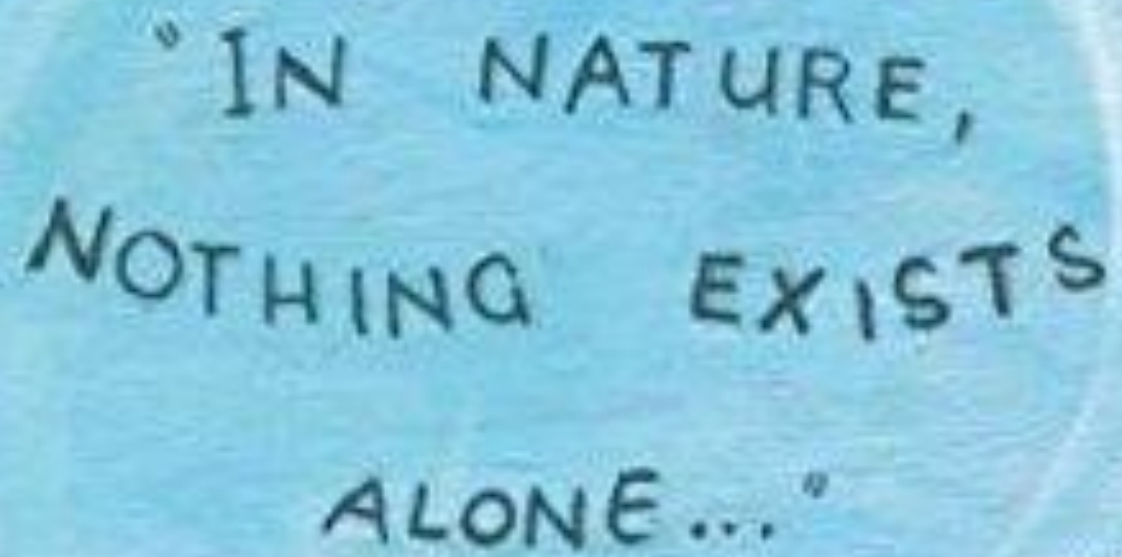 "IN NATURE,
NOTHING EXISTS
ALONE..."